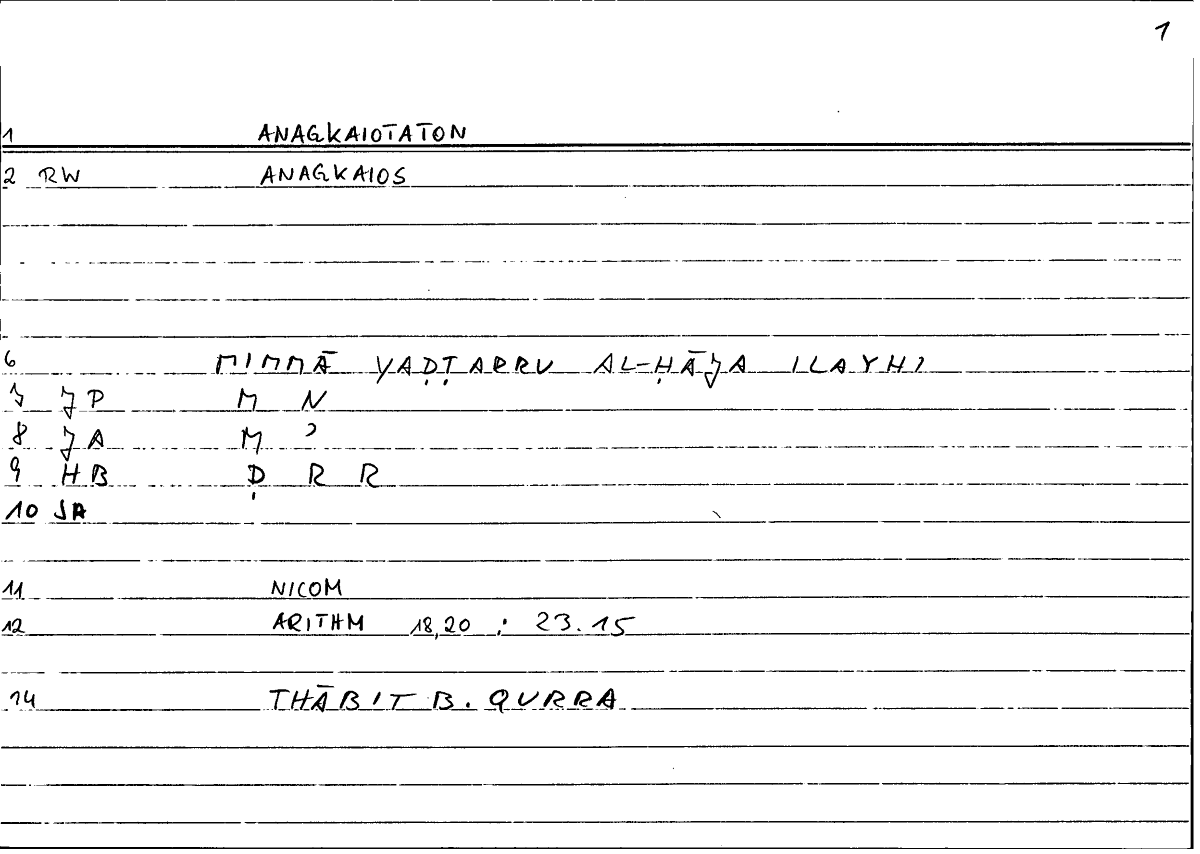 1
1 ANAGKAIOTATON
2 RW ANAGKAIOS
6 MIMMĀ YAḌṬARRU AL-ḤĀJA ILAYHI
7 JP M N
8 JA M ʾ
9 HB Ḍ R R
10 SA
11 NICOM
12 ARITHM 18,20 ; 23.15
14 THĀBIT B. QURRA